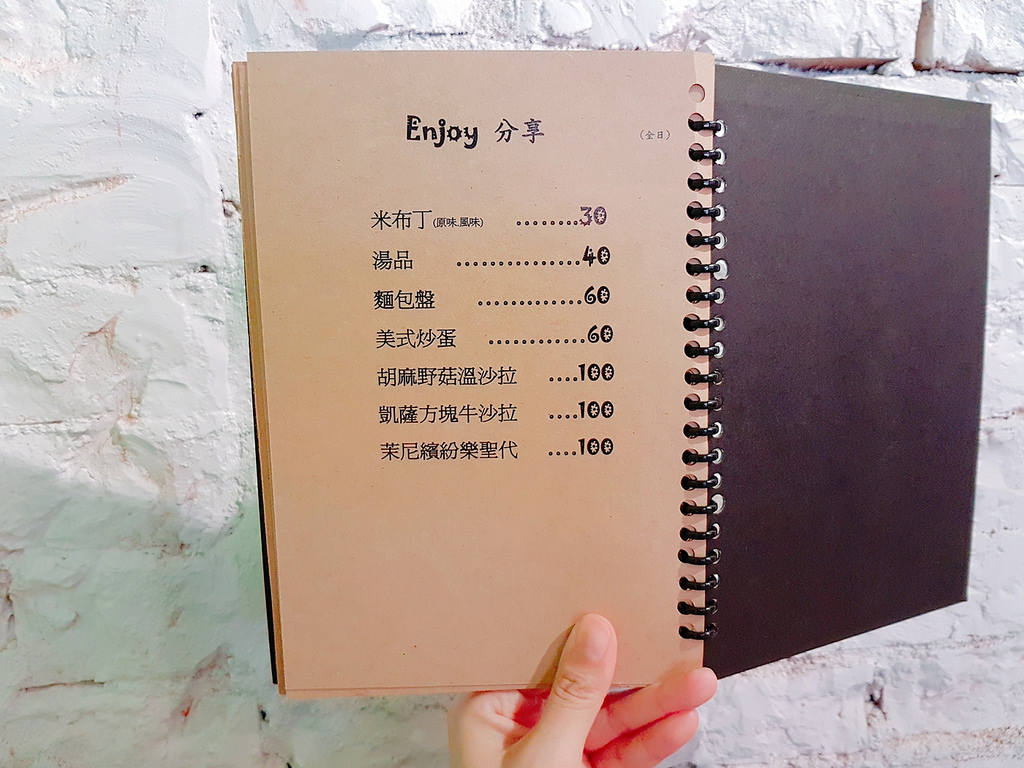 Enjoy 分享 (全日)
米布丁(原味.風味) ........30
湯品 ...............40
麵包盤 .............60
美式炒蛋 ............60
胡麻野菇溫沙拉 ....100
凱薩方塊牛沙拉 ....100
茉尼繽紛樂聖代 ....100